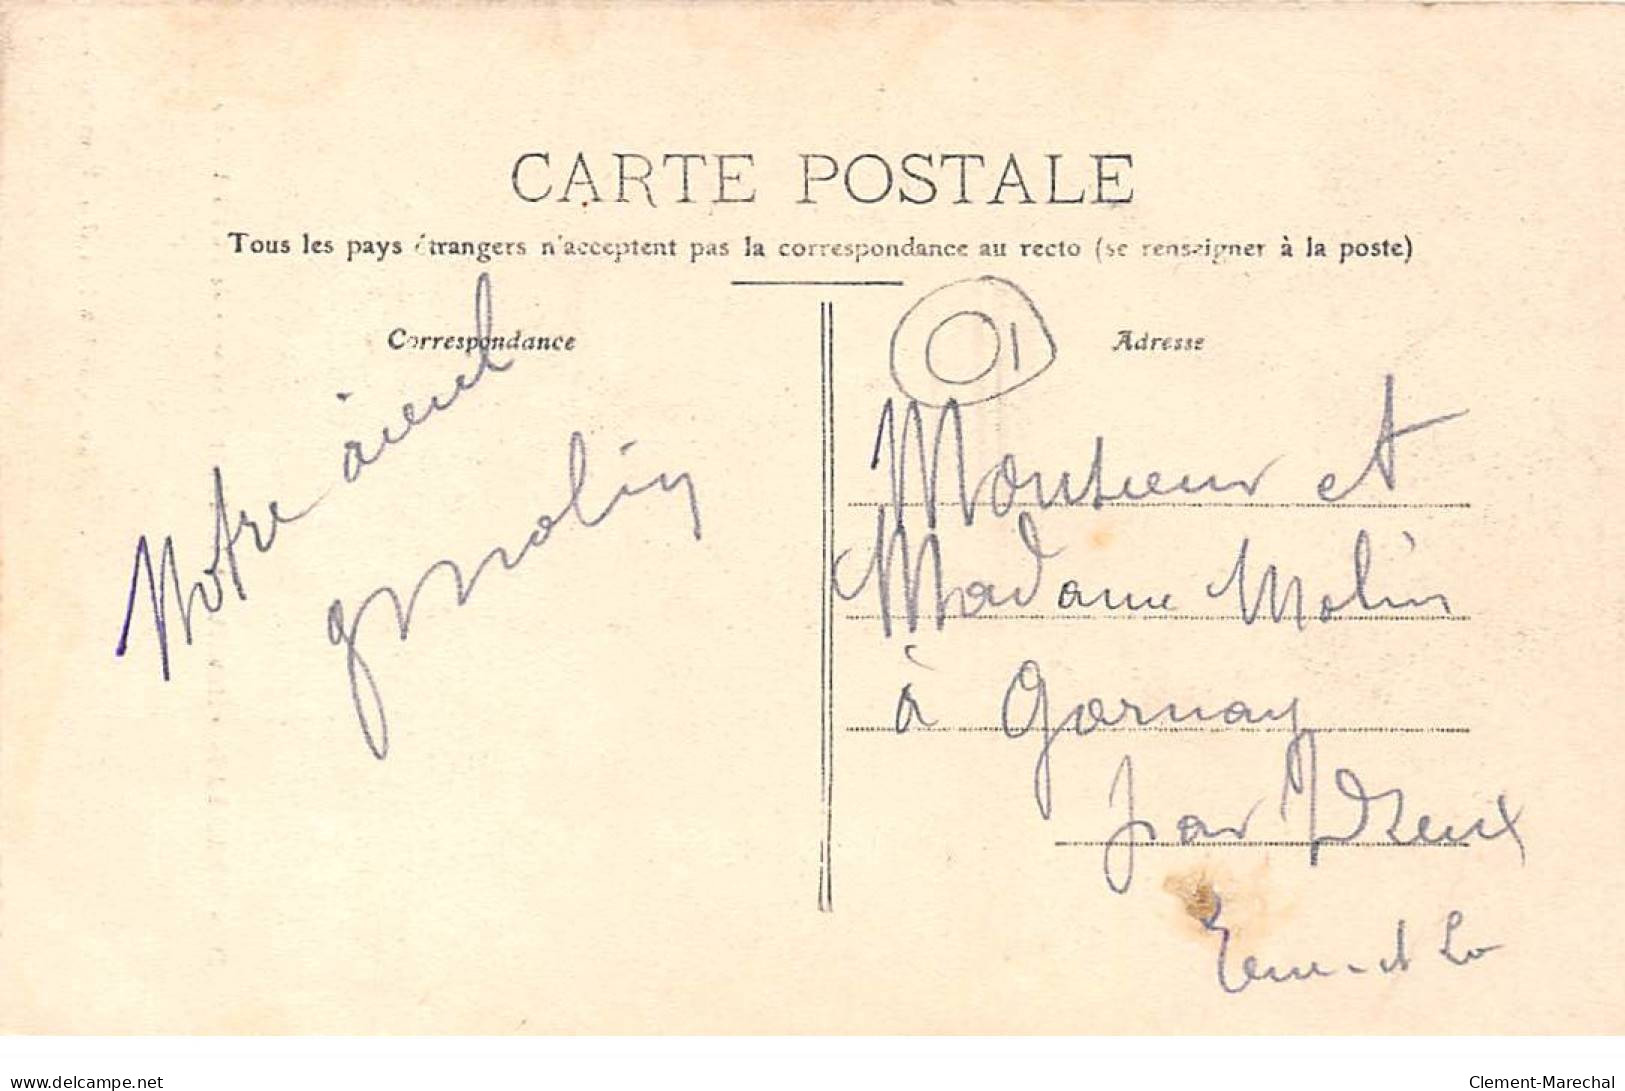 CARTE POSTALE
Tous les pays étrangers n'acceptent pas la correspondance au recto (se renseigner à la poste)
Correspondance
Notre aïeul
G Molin
Adresse
01
Monsieur et
Madame Molin
à Garnay
par Dreux
Eure-et Lo
delcampe.net
Clement-Marechal